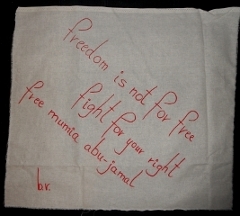 freedom is not for free
fight for your right
free mumia abu-jamal
b.r.